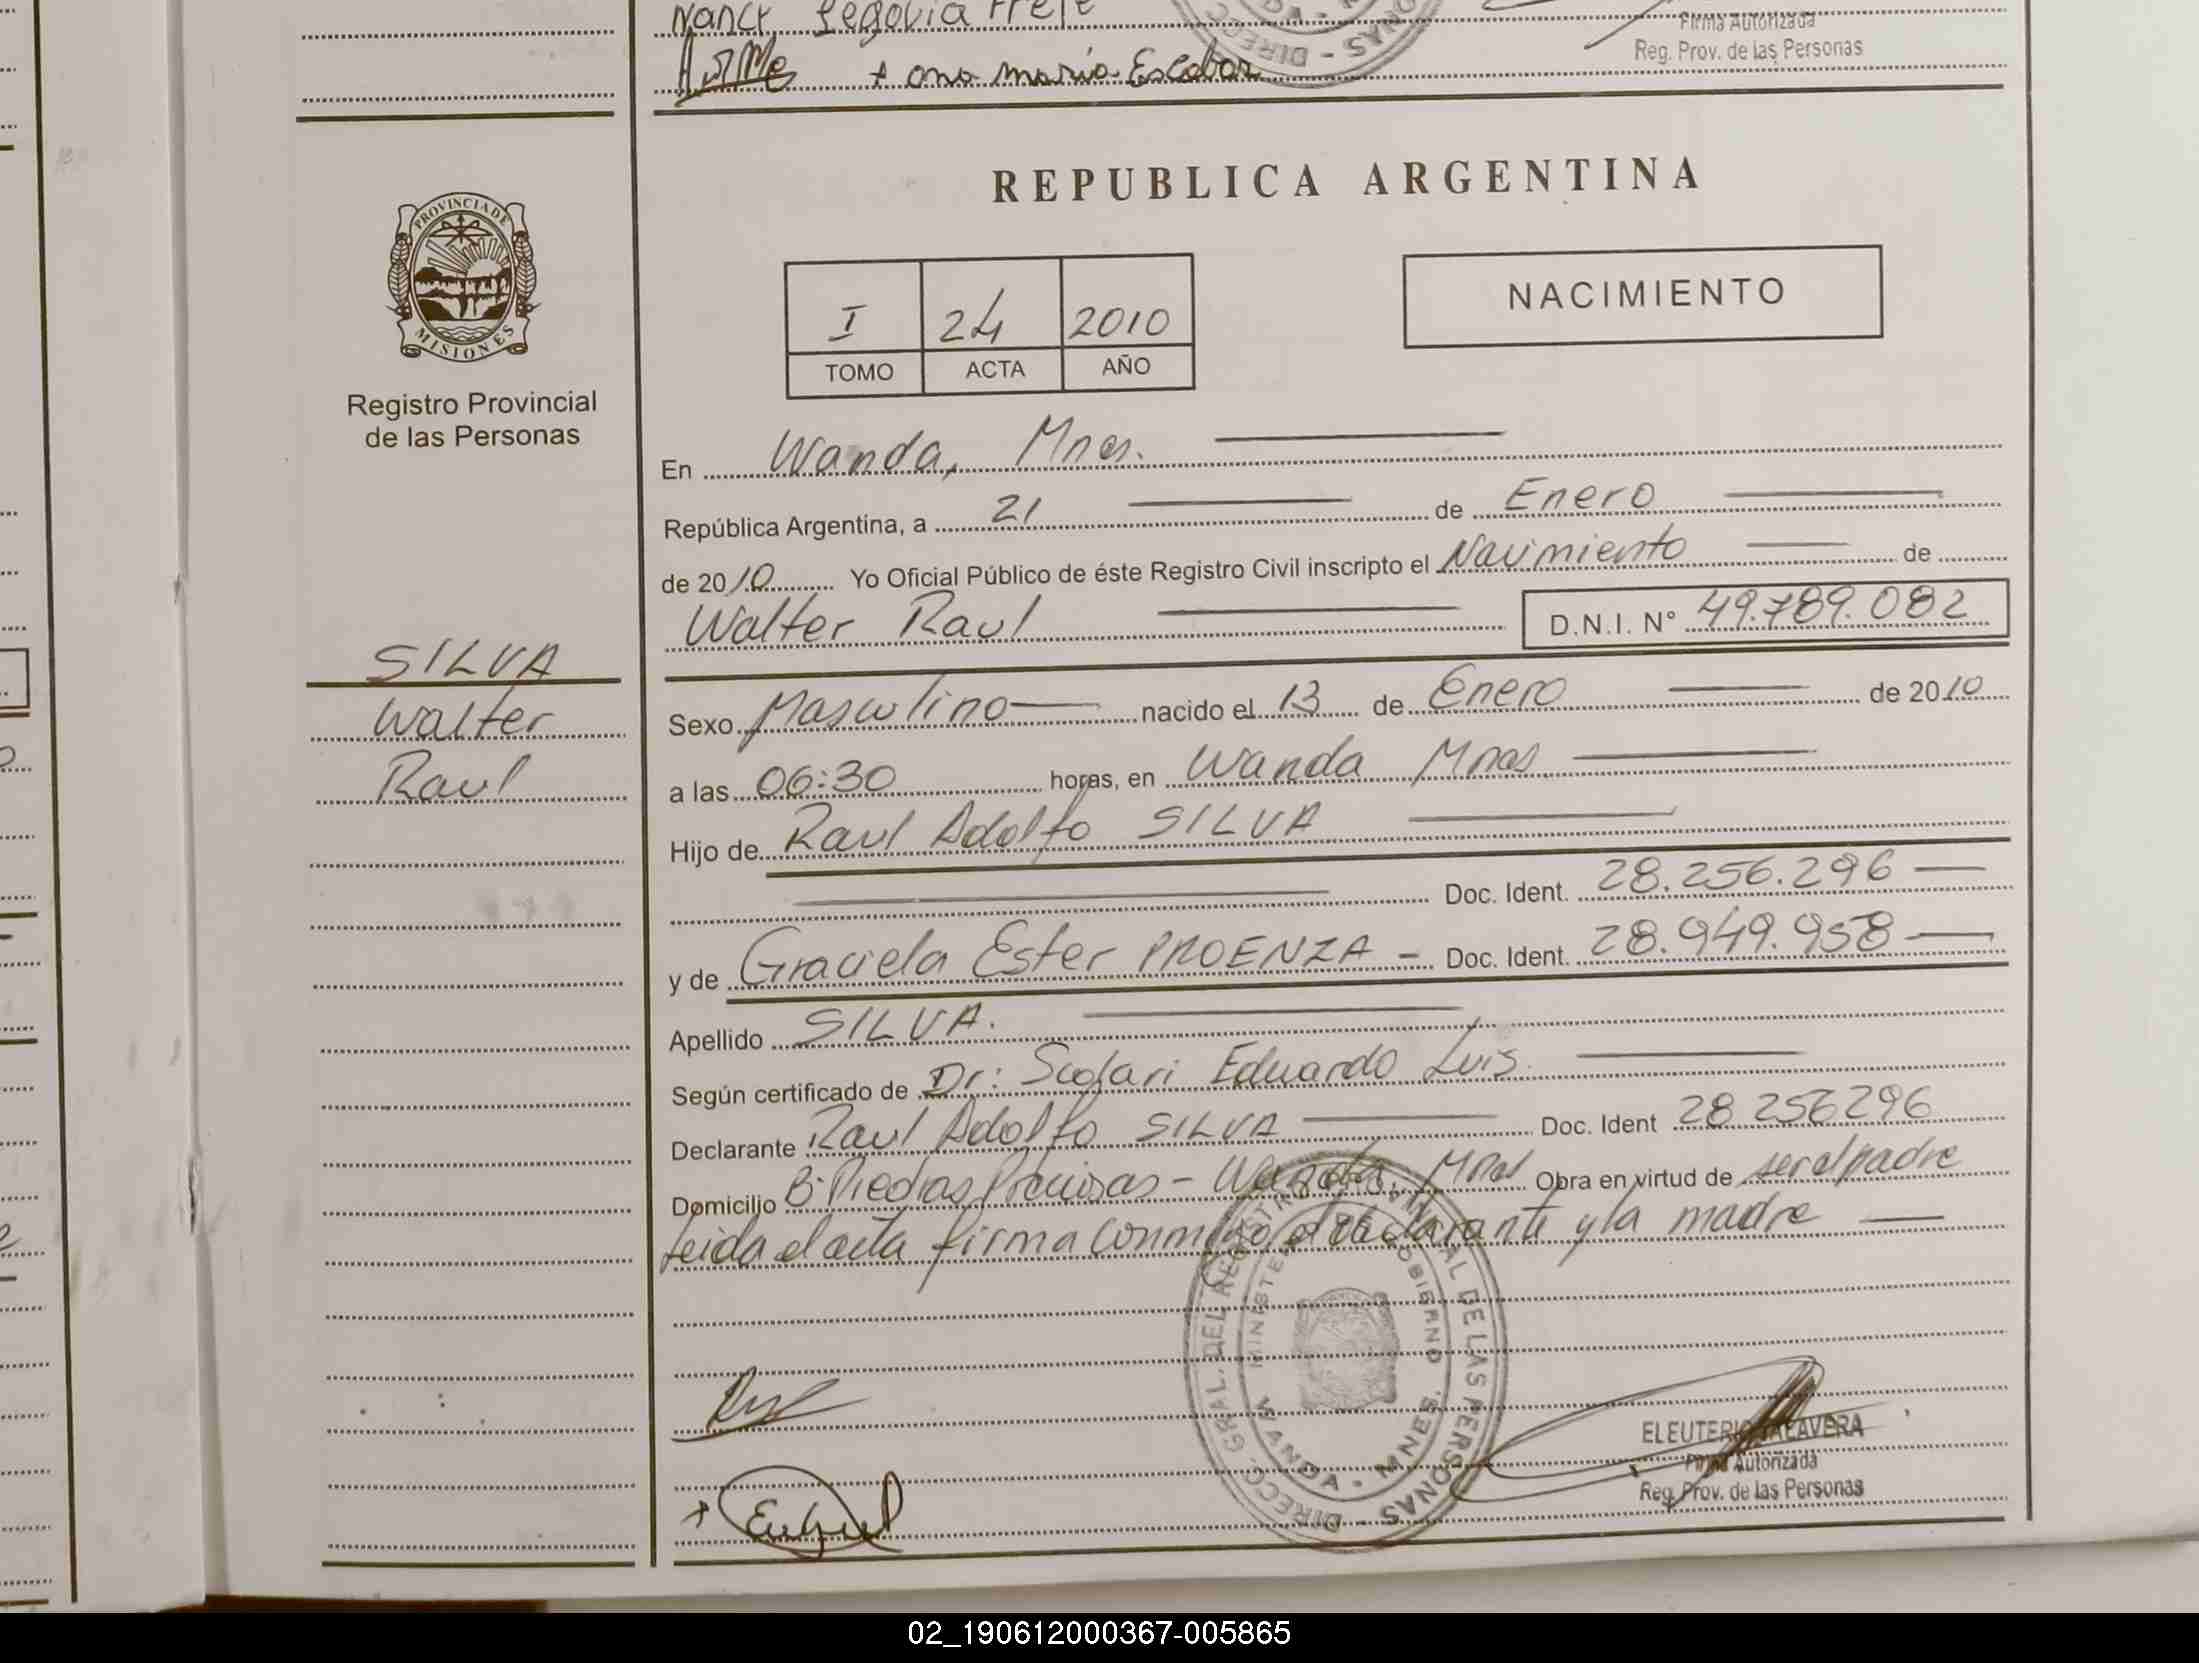 Nancy Segovia Frete
+ ana maria Escobar
Firma Autorizada
Reg. Prov. de las Personas
REPUBLICA ARGENTINA
PROVINCIA DE
MISIONES
Registro Provincial
de las Personas
I 24 2010
TOMO ACTA AÑO
NACIMIENTO
En Wanda, Mnes.
República Argentina, a 21 de Enero
de 2010 Yo Oficial Público de éste Registro Civil inscripto el Nacimiento de
Walter Raul D.N.I. N° 49.789.082
SILVA
Walter
Raul
Sexo Masculino nacido el 13 de Enero de 2010
a las 06:30 horas, en Wanda Mnes
Hijo de Raul Adolfo SILVA
Doc. Ident. 28.256.296
y de Graciela Ester PROENZA - Doc. Ident. 28.949.958
Apellido SILVA.
Según certificado de Dr: Scolari Eduardo Luis.
Declarante Raul Adolfo SILVA Doc. Ident 28 256296
Domicilio B: Piedras Preciosas - Wanda, Mnes Obra en virtud de ser el padre
Leida el acta firma conmigo el declarante y la madre
DIRECC. GRAL. DEL REGISTRO PROVINCIAL DE LAS PERSONAS -
MINISTERIO DE GOBIERNO
WANDA - MNES.
ELEUTERIO TALAVERA
Firma Autorizada
Reg. Prov. de las Personas
02_190612000367-005865